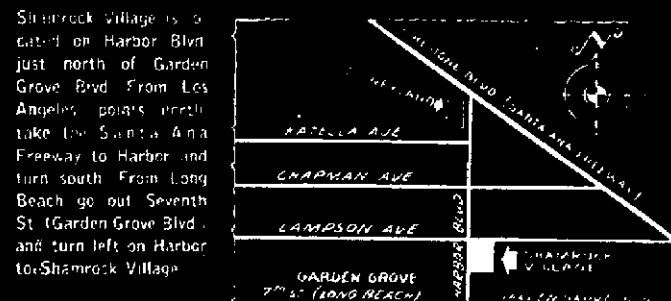 Shamrock Village is lo-
cated on Harbor Blvd.
just north of Garden
Grove Blvd From Los
Angeles points north
take the Santa Ana
Freeway to Harbor and
turn south From Long
Beach go out Seventh
St. (Garden Grove Blvd.
and turn left on Harbor
to Shamrock Village
BLVD (SANTA ANA FREEWAY)
KATELLA AVE
CHAPMAN AVE
LAMPSON AVE
HARBOR BLVD
SHAMROCK
VILLAGE
GARDEN GROVE
7TH ST (LONG BEACH)